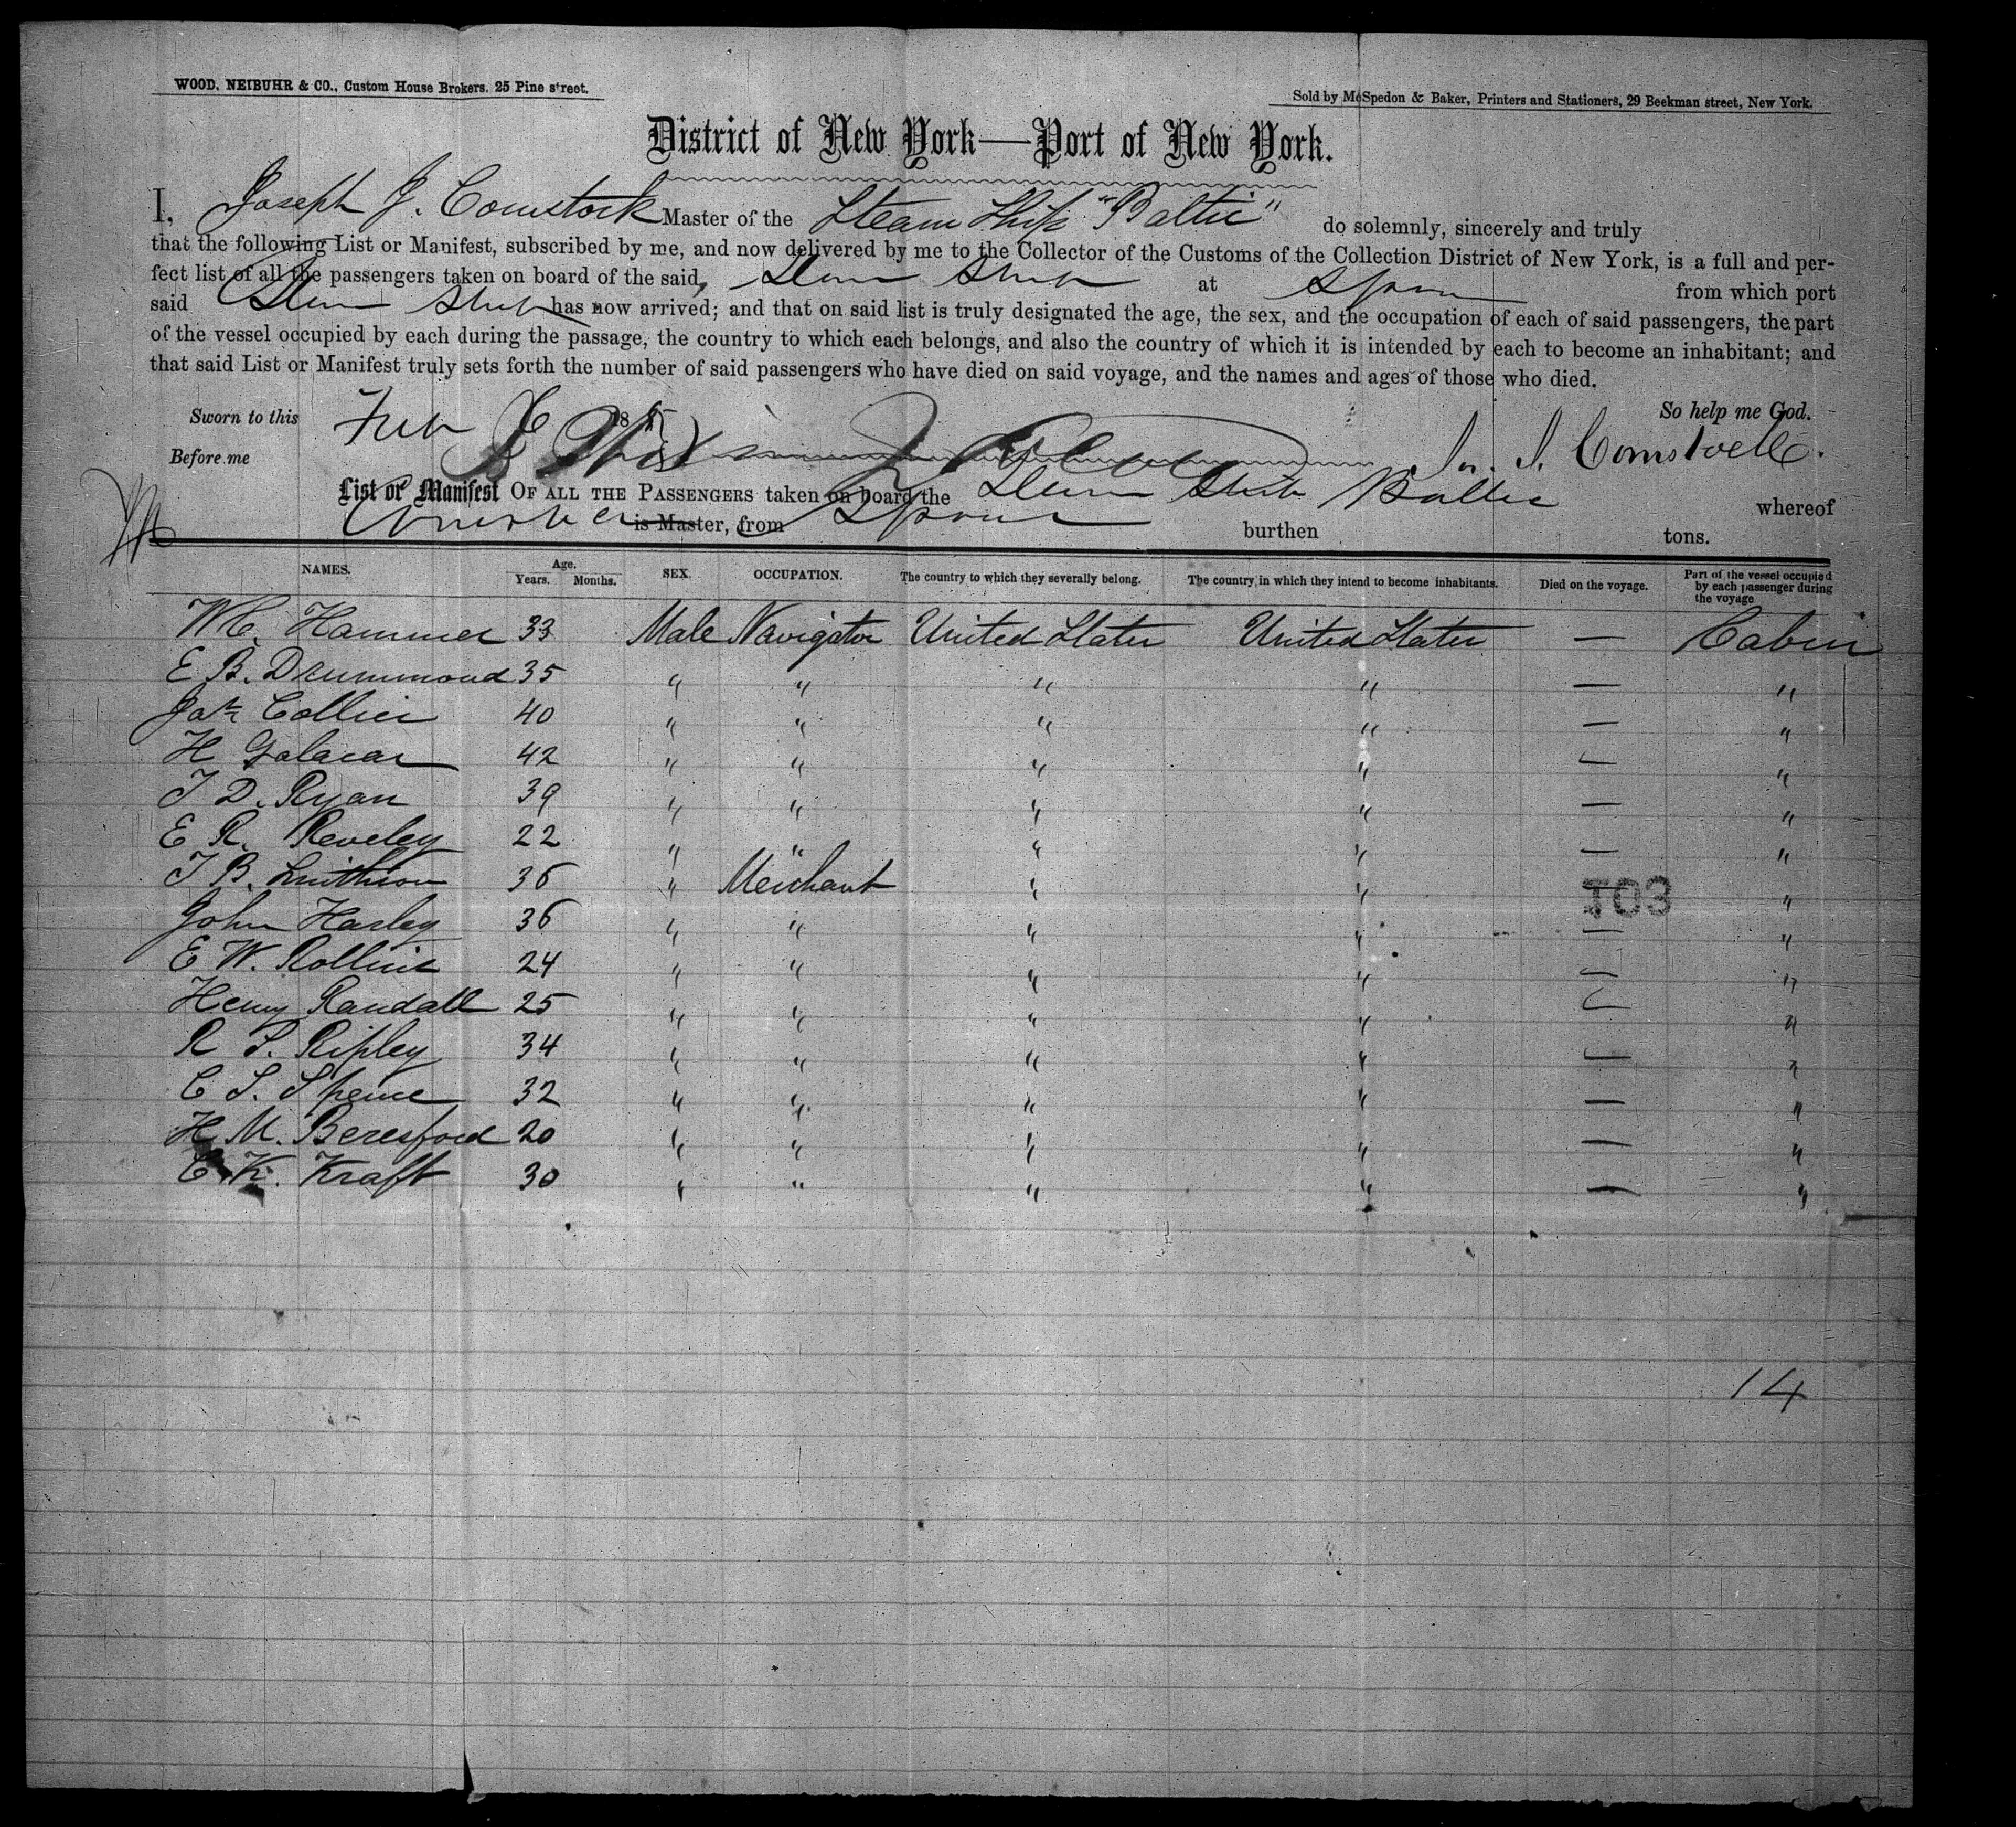 WOOD, NEIBUHR & CO., Custom House Brokers. 25 Pine street.
Sold by McSpedon & Baker, Printers and Stationers, 29 Beekman street, New York.
District of New York—Port of New York.
I, Joseph J. Comstock Master of the Steam Ship "Baltic" do solemnly, sincerely and truly
that the following List or Manifest, subscribed by me, and now delivered by me to the Collector of the Customs of the Collection District of New York, is a full and per-
fect list of all the passengers taken on board of the said, Steam Ship at from which port
said Steam Ship has now arrived; and that on said list is truly designated the age, the sex, and the occupation of each of said passengers, the part
of the vessel occupied by each during the passage, the country to which each belongs, and also the country of which it is intended by each to become an inhabitant; and
that said List or Manifest truly sets forth the number of said passengers who have died on said voyage, and the names and ages of those who died.
Sworn to this 18 So help me God.
Before me J. J. Comstock.
List or Manifest OF ALL THE PASSENGERS taken on board the Steam Ship Baltic whereof
is Master, from burthen tons.
NAMES. Age. Years. Months. SEX. OCCUPATION. The country to which they severally belong. The country in which they intend to become inhabitants. Died on the voyage. Part of the vessel occupied by each passenger during the voyage
Hammer 33 Male Navigator United States United States — Cabin
E B. Drummond 35 " " " " — "
Jas. Collier 40 " " " " — "
H 42 " " " " — "
T D. Ryan 39 " " " " — "
E R. Reveley 22 " " " " — "
T B. 36 " Merchant " " — "
103
John Hasley 36 " " " " — "
E W. Rollins 24 " " " " — "
Henry Randall 25 " " " " — "
R S. Ripley 34 " " " " — "
C S. Spence 32 " " " " — "
H M. Beresford 20 " " " " — "
C K. Kraft 30 " " " " — "
14